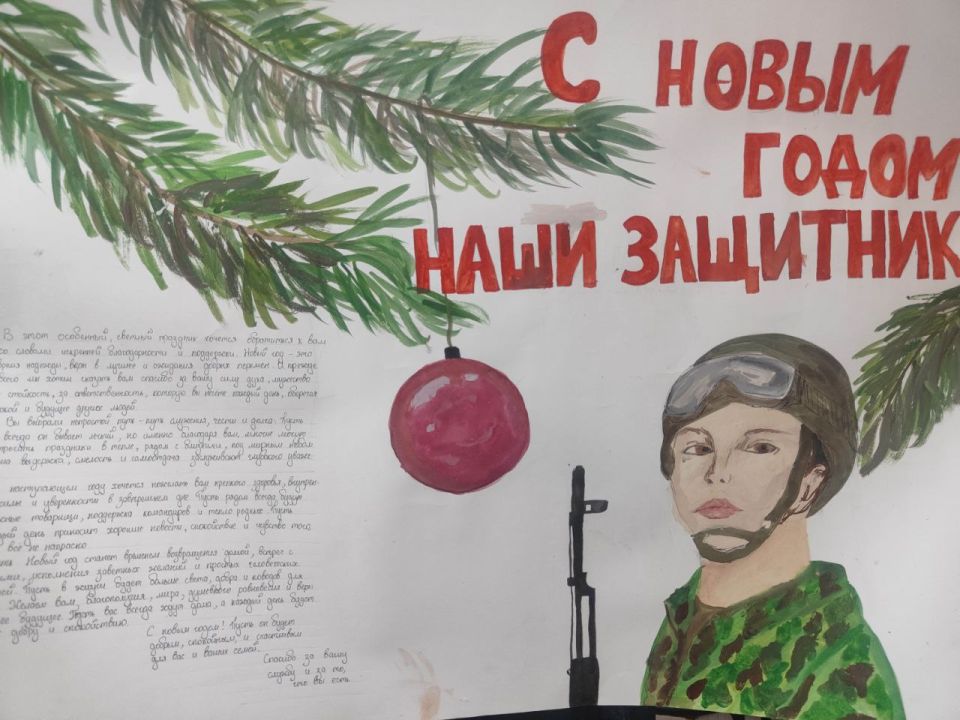 С НОВЫМ
ГОДОМ
НАШИ ЗАЩИТНИК
В этот особенный, светлый праздник хочется обратиться к вам
со словами искренней благодарности и поддержки. Новый год - это
надежды, вера в лучшее и ожидания добрых перемен. И прежде
всего мы хотим сказать вам спасибо за вашу силу духа, мужество
стойкость, за ответственность, которую вы несете каждый день, оберегая
покой и будущее других людей.
Вы выбрали непростой путь - путь служения, чести и долга. Пусть
всегда он бывает легкий, но именно благодаря вам, многие могут
встречать праздники в тепле, рядом с близкими, под мирным небом
выдержка, смелость и самоотдача заслуживают глубокого уваже-
наступающем году хочется пожелать вам крепкого здоровья, внутрен-
силы и уверенности в завтрашнем дне. Пусть рядом всегда будут
товарищи, поддержка командиров и тепло родных. Пусть
день приносит хорошие новости, спокойствие и чувство того,
все не напрасно.
Новый год станет временем возвращения домой, встреч с
исполнения заветных желаний и простых человеческих
Пусть в жизни будет больше света, добра и поводов для
Желаем вам, благополучия, мира, душевного равновесия и веры
будущее. Пусть вас всегда ждут дома, а каждый день будет
добру и спокойствию.
С новым годом! Пусть он будет
добрым, спокойным, и счастливым
для вас и ваших семей.
Спасибо за вашу
службу и за то,
что вы есть.